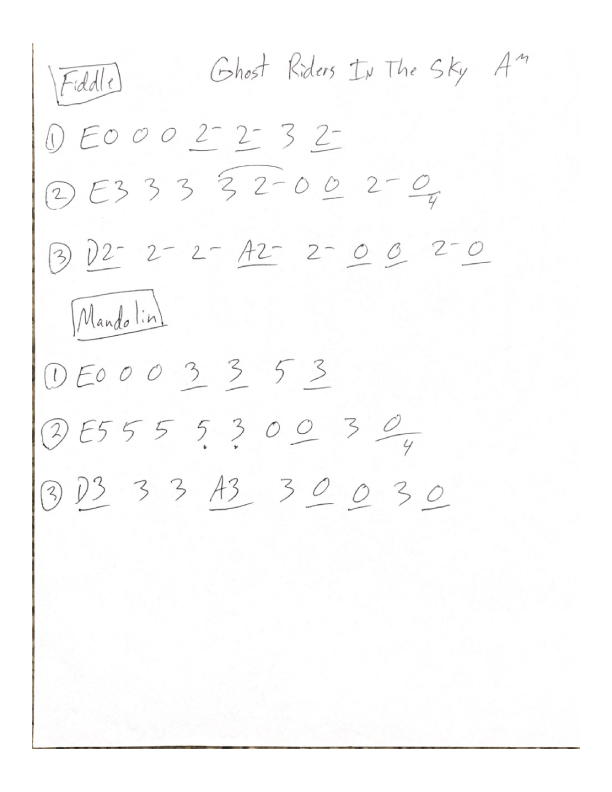 Fiddle Ghost Riders In The Sky Am
① E0 0 0 2- 2- 3 2-
② E3 3 3 3 2- 0 0 2- 0
4
③ D2- 2- 2- A2- 2- 0 0 2- 0
Mandolin
① E0 0 0 3 3 5 3
② E5 5 5 5 3 0 0 3 0
4
③ D3 3 3 A3 3 0 0 3 0